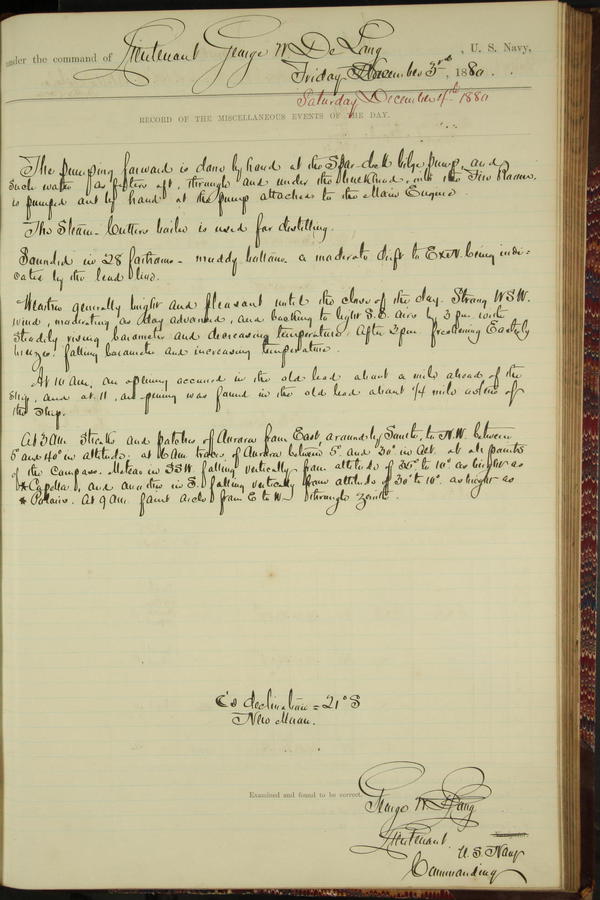 under the command of Lieutenant George W De Long, U. S. Navy,
Friday December 3rd, 1880.
Saturday December 4th 1880
RECORD OF THE MISCELLANEOUS EVENTS OF THE DAY.
The pumping forward is done by hand at the Spar-deck bilge pump, and
such water as filters aft, through and under the bulkhead, into the Fire Room,
is pumped out by hand at the pump attached to the Main Engine.
The Steam-Cutters boiler is used for distilling.
Sounded in 28 fathoms - muddy bottom. a moderate drift to ExN. being indi-
cated by the lead line.
Weather generally bright and pleasant until the close of the day. Strong WSW.
wind, moderating as day advanced, and backing to light S.E. airs by 3 pm. with
steadily rising barometer and decreasing temperature. After 3 pm. freshening Easterly
breezes, falling barometer and increasing temperature.
At 10 am, an opening occurred in the old lead about a mile ahead of the
ship, and at 11, an opening was found in the old lead about 1/4 mile astern of
the ship.
At 3 AM streaks and patches of Aurora from East, around by South, to N.W. between
5° and 40° in altitude: at 6 AM traces of Aurora between 5° and 30° in Alt. at all points
of the Compass. Meteor in SSW. falling vertically from altitude of 35° to 10° as bright as
* Capella, and another in S. falling vertically from altitude of 30° to 10°. as bright as
* Polaris. At 9 am. faint arch from E to W through zenith.
declination = 21° S
New Moon.
Examined and found to be correct.
George W. De Long
Lieutenant
U. S. Navy
Commanding